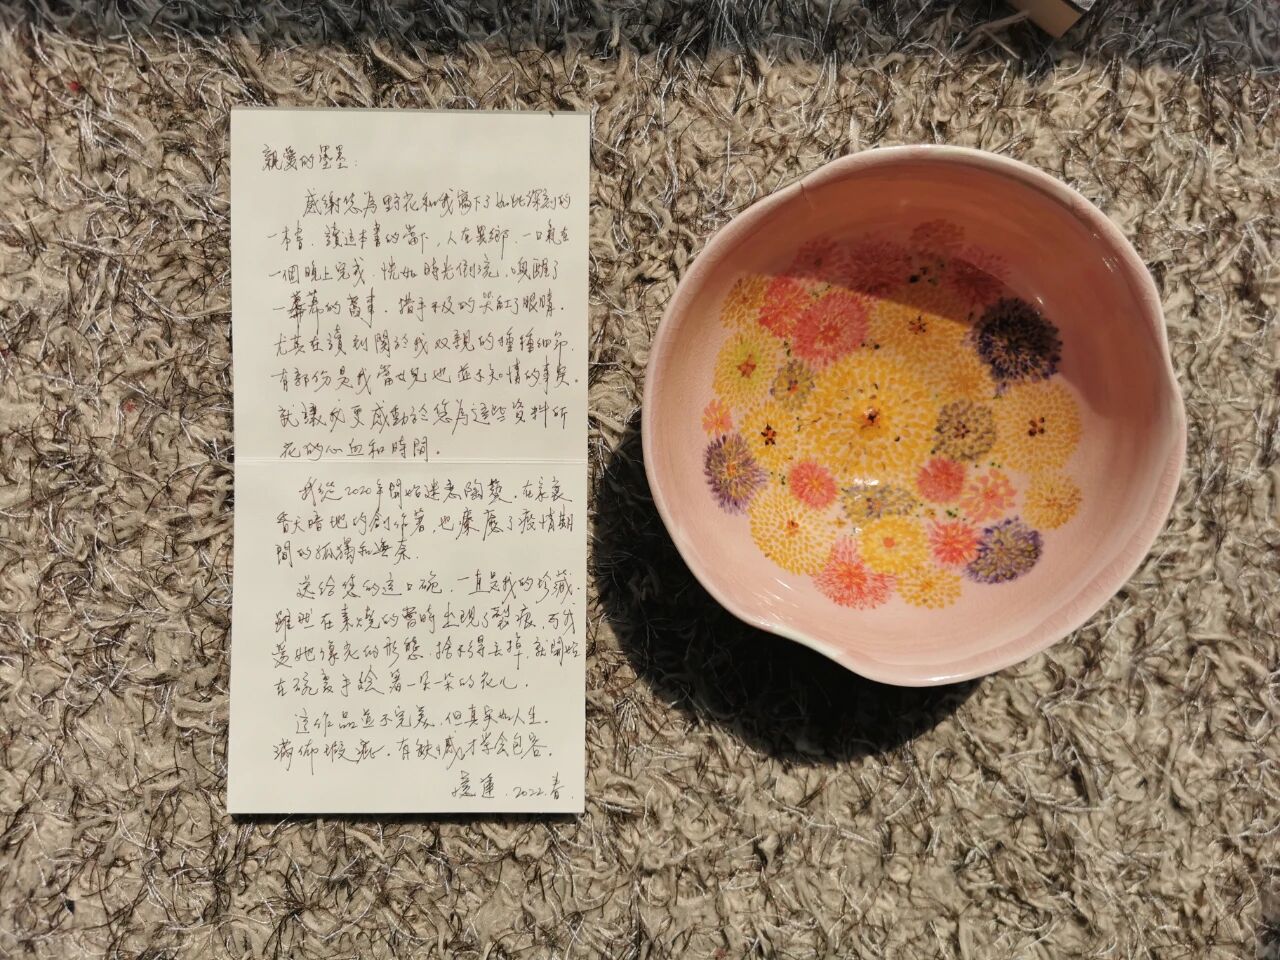 親愛的墨墨：
感謝您為野花和我寫下了如此深刻的
一本書，讀這本書的當下，人在異鄉，一口氣在
一個晚上完成，恍如時光倒流，喚醒了
一幕幕的舊事，措手不及的哭紅了眼睛。
尤其在讀到關於我双親的種種細節
有部份是我當女兒也並不知情的事與
就讓我更感動於您為這些資料所
花的心血和時間。
我從2020年開始迷戀陶藝，在家裏
昏天暗地的創作著，也療癒了疫情期
間的孤獨和無奈。
送給您的這口碗，一直是我的珍藏，
雖然在素燒的當時出現了裂痕，而我
愛她像花的形態，捨不得丟掉，就開始
在碗裏手繪著一朵一朵的花兒。
這作品並不完美，但真實如人生。
滿佈瑕疵，有缺憾才學會包容。
蓮，2022.春.